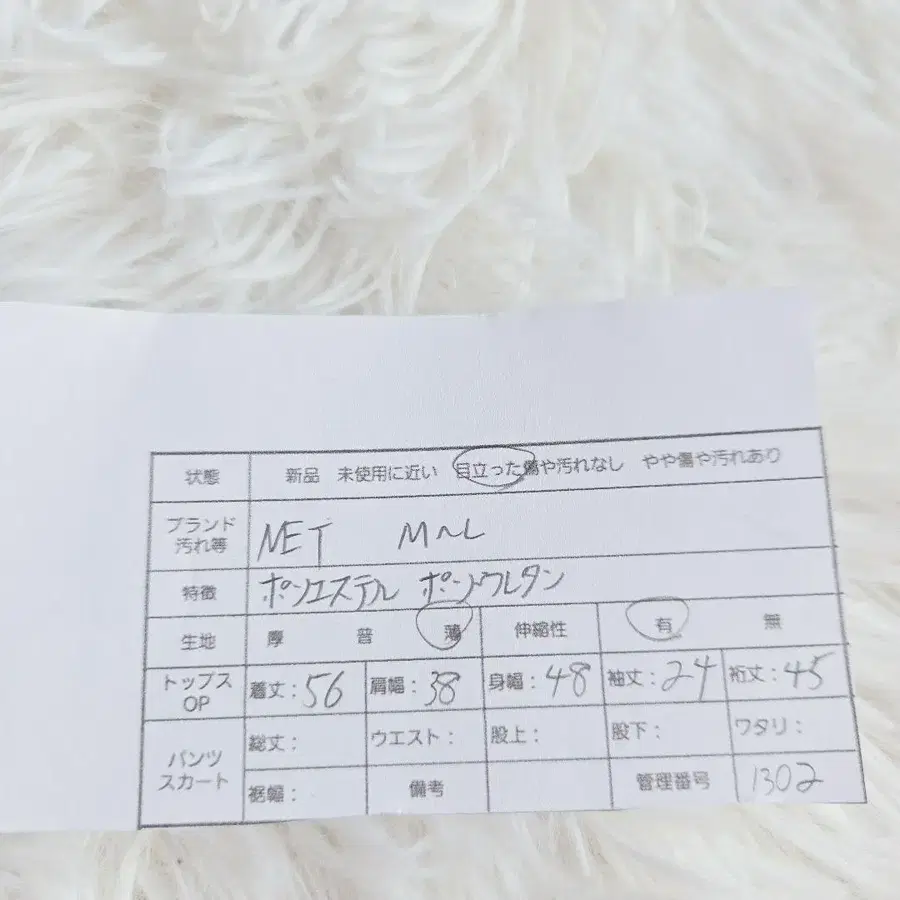 状態 新品 未使用に近い 目立った傷や汚れなし やや傷や汚れあり
ブランド
汚れ等 NET M~L
特徴 ポリエステル ポリウレタン
生地 厚 普 薄 伸縮性 有 無
トップス
OP 着丈:56 肩幅:38 身幅:48 袖丈:24 裄丈:45
パンツ
スカート 総丈: ウエスト: 股上: 股下: ワタリ:
裾幅: 備考 管理番号 1302